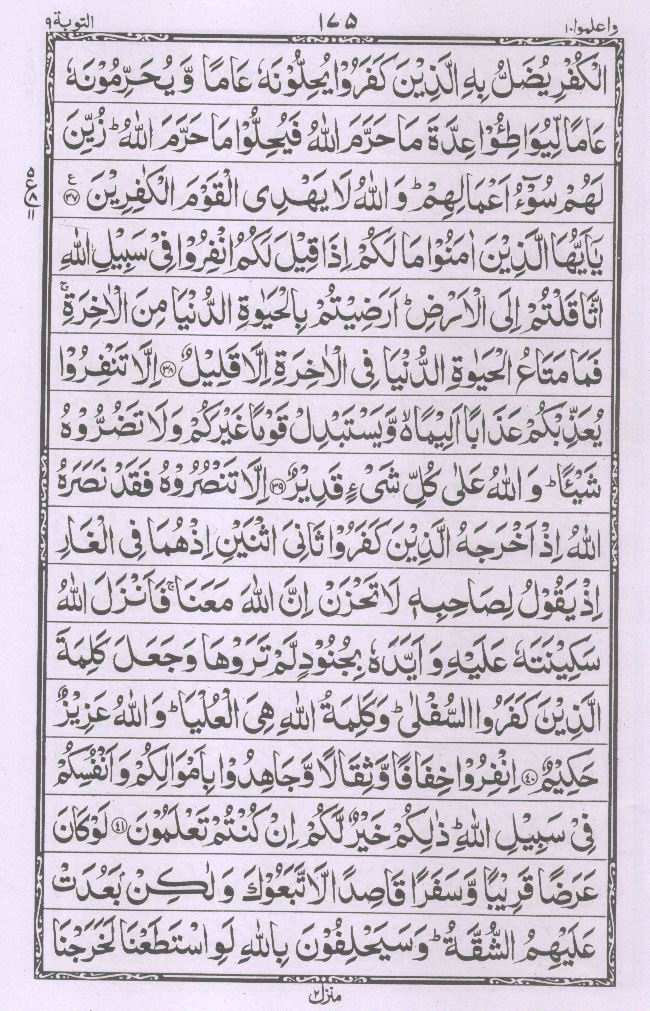 واعلموا ۱۰ ۱۷۵ التوبة ۹
الْكُفْرِ يُضَلُّ بِهِ الَّذِيْنَ كَفَرُوْا يُحِلُّوْنَهٗ عَامًا وَّ يُحَرِّمُوْنَهٗ
عَامًا لِّيُوَاطِـُٔوْا عِدَّةَ مَا حَرَّمَ اللّٰهُ فَيُحِلُّوْا مَا حَرَّمَ اللّٰهُ ؕ زُيِّنَ
لَهُمْ سُوْٓءُ اَعْمَالِهِمْ ؕ وَ اللّٰهُ لَا يَهْدِی الْقَوْمَ الْكٰفِرِيْنَ ﴿۳۷﴾ ع
يٰۤاَيُّهَا الَّذِيْنَ اٰمَنُوْا مَا لَكُمْ اِذَا قِيْلَ لَكُمُ انْفِرُوْا فِیْ سَبِيْلِ اللّٰهِ
اثَّاقَلْتُمْ اِلَی الْاَرْضِ ؕ اَرَضِيْتُمْ بِالْحَيٰوةِ الدُّنْيَا مِنَ الْاٰخِرَةِ ۚ
فَمَا مَتَاعُ الْحَيٰوةِ الدُّنْيَا فِی الْاٰخِرَةِ اِلَّا قَلِيْلٌ ﴿۳۸﴾ اِلَّا تَنْفِرُوْا
يُعَذِّبْكُمْ عَذَابًا اَلِيْمًا ۙ وَّ يَسْتَبْدِلْ قَوْمًا غَيْرَكُمْ وَ لَا تَضُرُّوْهُ
شَيْـًٔا ؕ وَ اللّٰهُ عَلٰی كُلِّ شَیْءٍ قَدِيْرٌ ﴿۳۹﴾ اِلَّا تَنْصُرُوْهُ فَقَدْ نَصَرَهُ
اللّٰهُ اِذْ اَخْرَجَهُ الَّذِيْنَ كَفَرُوْا ثَانِیَ اثْنَيْنِ اِذْ هُمَا فِی الْغَارِ
اِذْ يَقُوْلُ لِصَاحِبِهٖ لَا تَحْزَنْ اِنَّ اللّٰهَ مَعَنَا ۚ فَاَنْزَلَ اللّٰهُ
سَكِيْنَتَهٗ عَلَيْهِ وَ اَيَّدَهٗ بِجُنُوْدٍ لَّمْ تَرَوْهَا وَ جَعَلَ كَلِمَةَ
الَّذِيْنَ كَفَرُوا السُّفْلٰی ؕ وَ كَلِمَةُ اللّٰهِ هِیَ الْعُلْيَا ؕ وَ اللّٰهُ عَزِيْزٌ
حَكِيْمٌ ﴿۴۰﴾ اِنْفِرُوْا خِفَافًا وَّ ثِقَالًا وَّ جَاهِدُوْا بِاَمْوَالِكُمْ وَ اَنْفُسِكُمْ
فِیْ سَبِيْلِ اللّٰهِ ؕ ذٰلِكُمْ خَيْرٌ لَّكُمْ اِنْ كُنْتُمْ تَعْلَمُوْنَ ﴿۴۱﴾ لَوْ كَانَ
عَرَضًا قَرِيْبًا وَّ سَفَرًا قَاصِدًا لَّاتَّبَعُوْكَ وَ لٰكِنْۢ بَعُدَتْ
عَلَيْهِمُ الشُّقَّةُ ؕ وَ سَيَحْلِفُوْنَ بِاللّٰهِ لَوِ اسْتَطَعْنَا لَخَرَجْنَا
۵
ع ۸
۱۱
منزل ۲